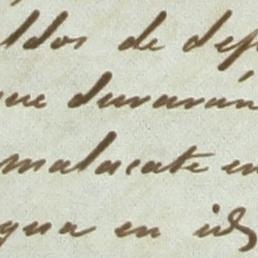 ldos de dep
que durarán
malacate en
gua en id